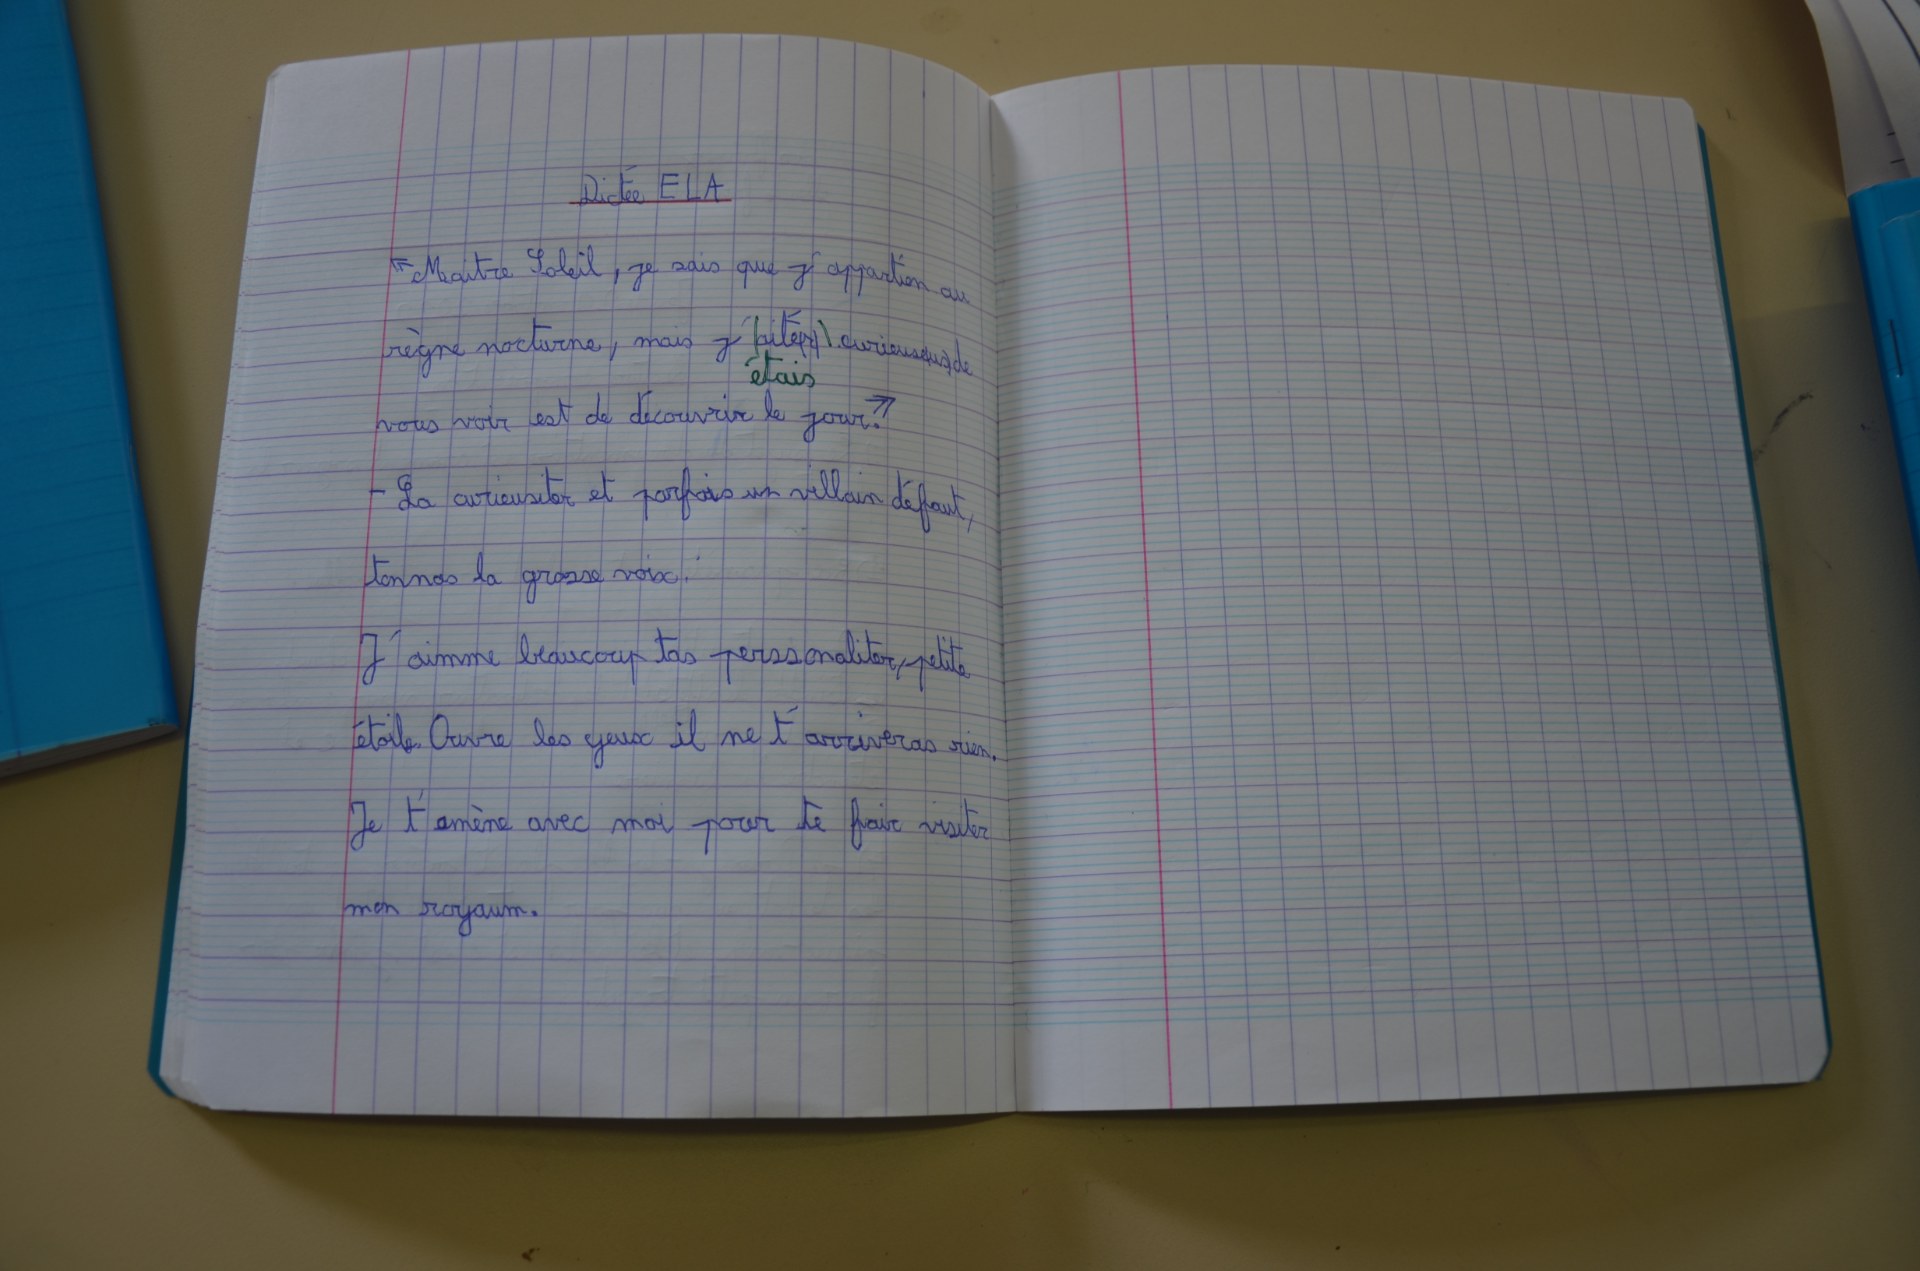 Dictée ELA
"Maitre Soleil, je sais que j'appartion au
règne nocturne, mais j' curieuse de
étais
vous voir est de découvrir le jour."
- La curieusiter et parfois un villain défaut,
tonnas la grosse voix.
J'aimme beaucoup tas perssonaliter, petite
étoile. Ouvre les yeux il ne t'arriveras rien.
Je t'amène avec moi pour te fair visiter
mon royaum.